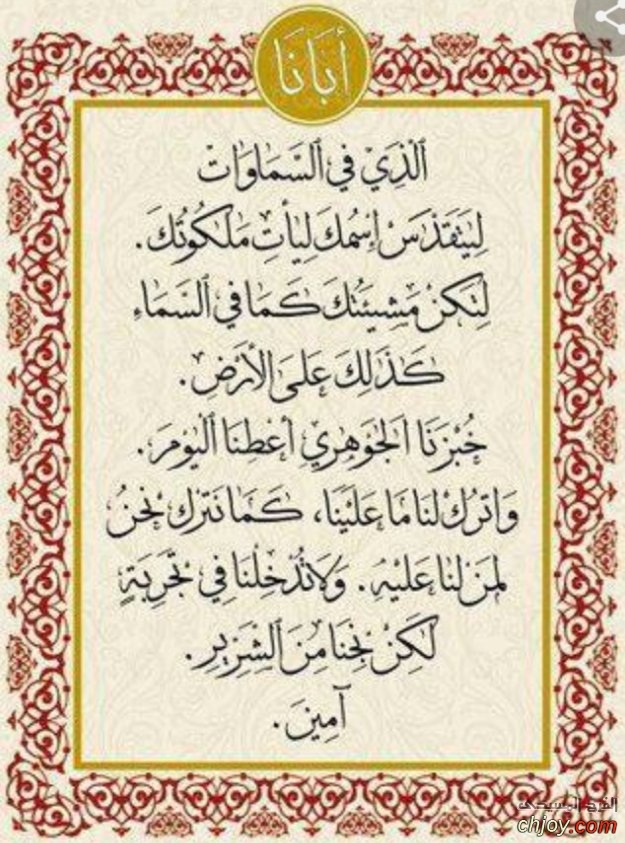 أَبَانَا
ٱلَّذِي فِي ٱلسَّمَاوَاتْ
لِيَتَقَدَّسَ إِسْمُكَ لِيَأْتِ مَلَكُوتُكَ.
لِتَكُنْ مَشِيئَتُكَ كَمَا فِي ٱلسَّمَاءِ
كَذَلِكَ عَلَى الأَرْضِ.
خُبْزَنَا ٱلْجَوْهَرِي أَعْطِنَا ٱلْيَوْمَ.
وَاتْرُكْ لَنَا مَا عَلَيْنَا، كَمَا نَتْرُك نَحْنُ
لِمَنْ لَنَا عَلَيْهِ. وَلَا تُدْخِلْنَا فِي تَجْرِبَةٍ
لَكِنْ نَجِّنَا مِنَ ٱلشِّرِّيرِ.
آمِينَ.
الفرح المسيحى
chjoy.com